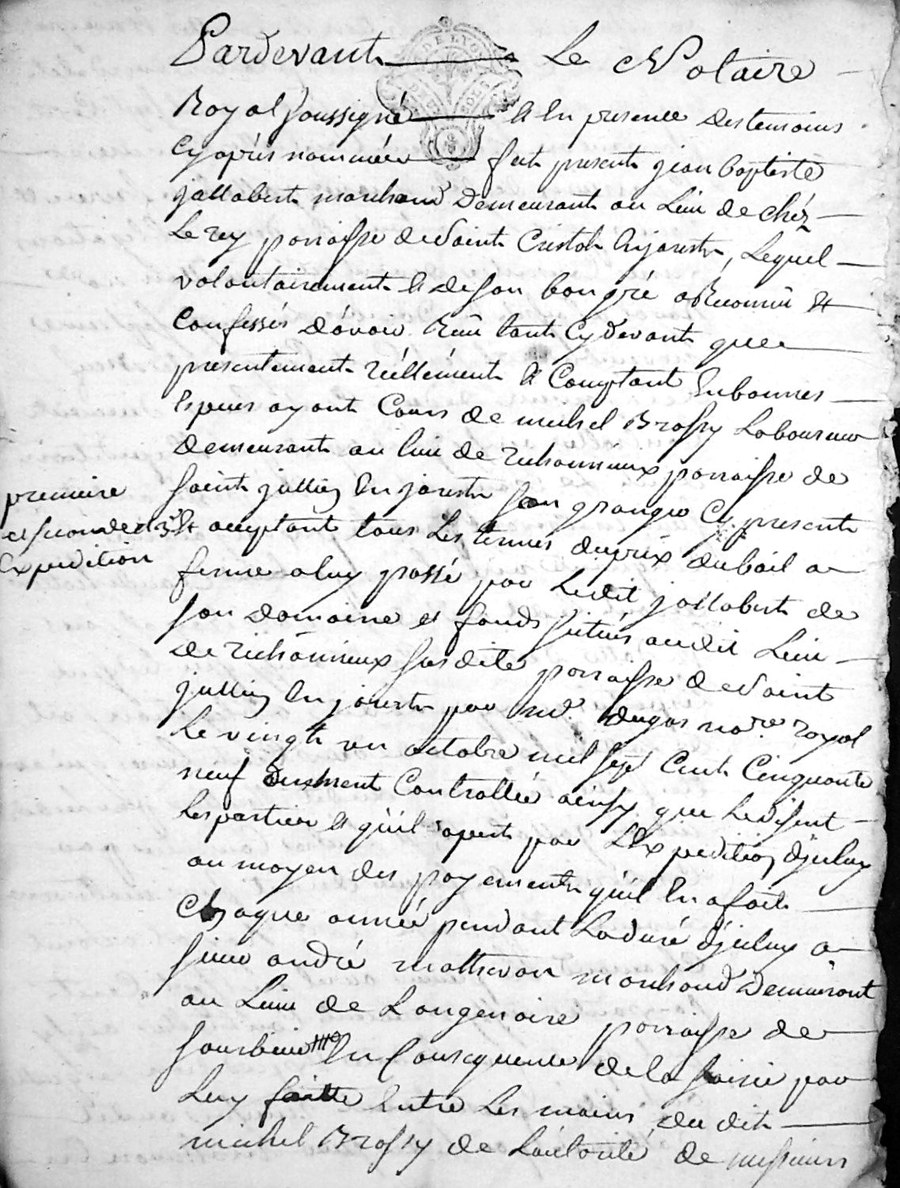 Pardevant Le Notaire
Royal soussigné & En presence des temoins
Cyaprés nommée fut present jean baptiste
jallabert marchand Demeurant au Lieu de chéz
Le rey parroisse de Saint Cristoh En jarestz, Lequel
volontairement & de son bon gré a Reconnu Et
Confessés D'avoir Reçu tant Cydevant que
presentement réellement & Comptant En bonnes
Especes ayant Cours de michel Brossy Laboureur
demeurant au lieu de richonnieux parroisse de
premiere
et seconde et 3e
Expedition
saint jullien En jarestz son granger Cy present
Et acceptant tous Les termes du prix du bail a
ferme a luy passé par Ledit jallabert de
son Domaine et fonds situés audit Lieu
de richonnieux susdite parroisse de Saint
jullien En jarestz par Me. dugas nore. royal
Le vingt un octobre mil sept Cent Cinquante
neuf duement Controllée ainsy que Le disent
Les parties & qu'il apert par L'Expedition d'jceluy
au moyen des payements qu'il En a faits
Chaque année pendant La duré d'jceluy a
sieur andré matheron marchand Demeurant
au Lieu de Longenoire parroisse de
sorbier En Consequence de la saisie par
Luy faitte Entre Les mains dudit
michel Brossy de L'autorité de messieurs